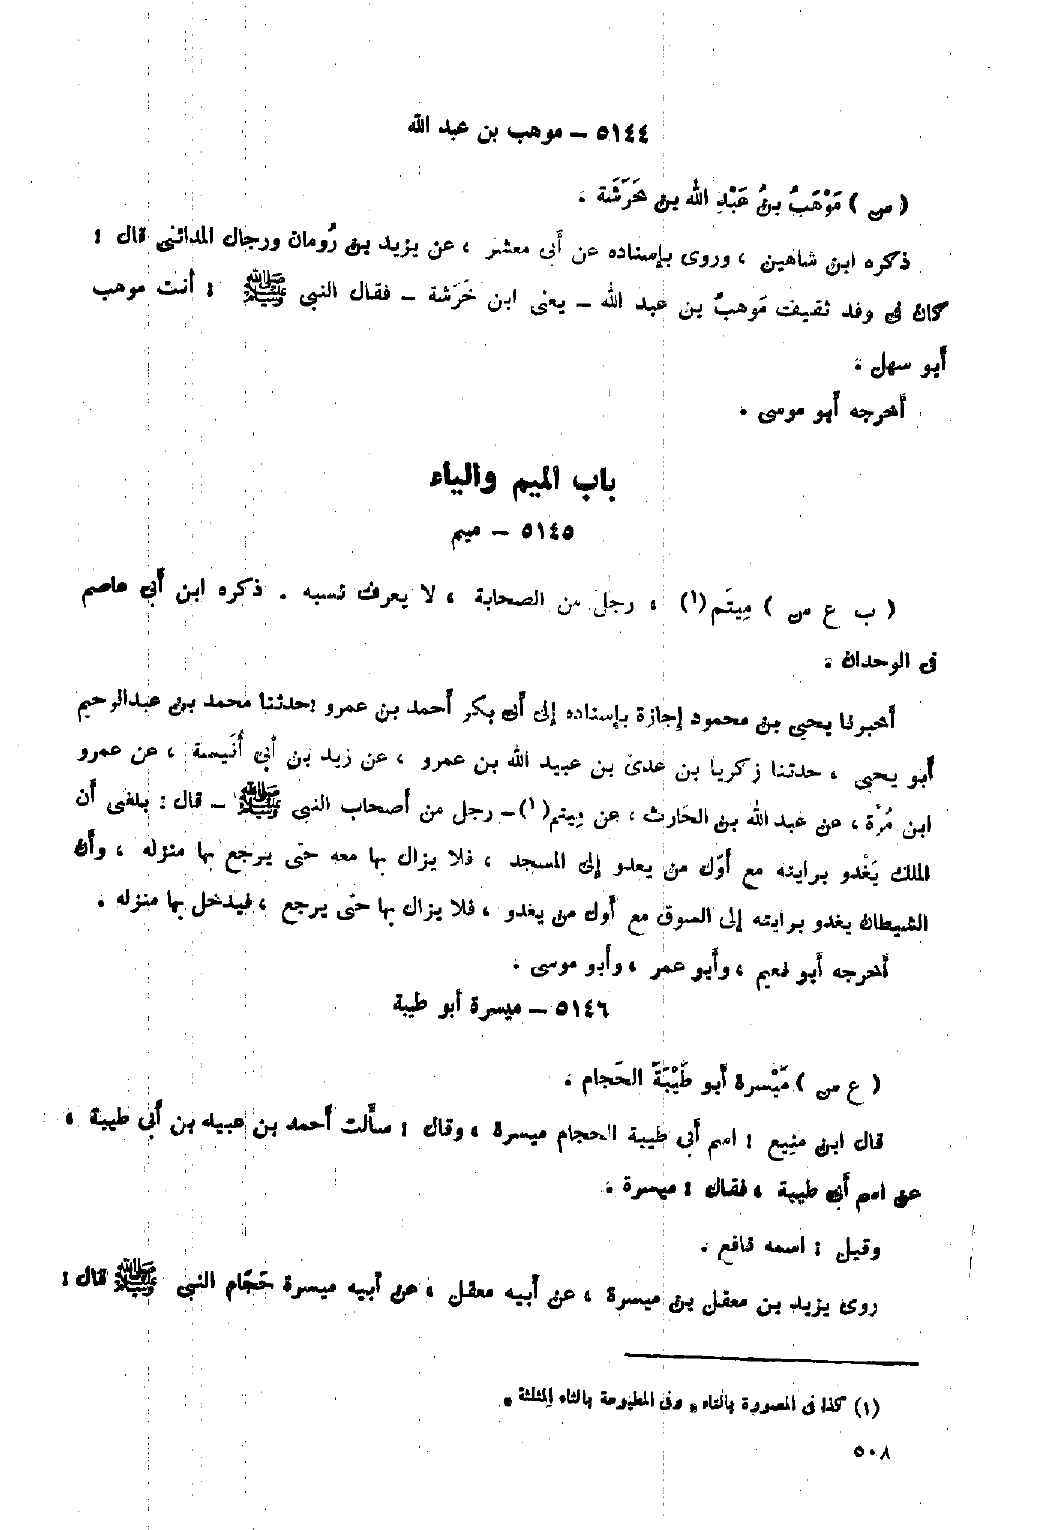 ٥١٤٤ – موهب بن عبد الله
( س ) مَوْهَبُ بنُ عَبْدِ الله بن خَرَشَة .
ذكره ابن شاهين ، وروى بإسناده عن أَبى معشر ، عن يزيد بن رُومان ورجال المدائنى قال :
كان فى وفد ثقيف مَوهبُ بن عبد الله – يعنى ابن خَرَشة – فقال النبى ﷺ : أَنت موهب
أَبو سهل .
أَخرجه أَبو موسى .
باب الميم والياء
٥١٤٥ – ميتم
( ب ع س ) مِيتَم(١) ، رجل من الصحابة ، لا يعرف نسبه . ذكره ابن أَبى عاصم
فى الوحدان .
أَخبرنا يحيى بن محمود إِجازة بإِسناده إِلى أَبى بكر أَحمد بن عمرو : حدثنا محمد بن عبدالرحيم
أَبو يحيى ، حدثنا زكريا بن عدىّ بن عبيد الله بن عمرو ، عن زيد بن أَبى أُنَيسة ، عن عمرو
ابن مُرَّة ، عن عبد الله بن الحارث ، عن مِيتم(١) – رجل من أَصحاب النبى ﷺ – قال : بلغنى أَن
الملك يَغْدو برايته مع أَوّل من يعدو إِلى المسجد ، فلا يزال بها معه حتى يرجع بها منزله ، وأَن
الشيطان يغدو برايته إِلى السوق مع أَول من يغدو ، فلا يزال بها حتى يرجع ، فيدخل بها منزله .
أَخرجه أَبو نعيم ، وأَبو عمر ، وأَبو موسى .
٥١٤٦ – ميسرة أبو طيبة
( ع س ) مَيْسرة أَبو طَيْبَةَ الحَجام .
قال ابن منِيع : اسم أَبى طيبة الحجام ميسرة ، وقال : سأَلت أَحمد بن عبيد بن أَبى طيبة ،
عن اسم أَبى طيبة ، فقال : ميسرة .
وقيل : اسمه نافع .
روى يزيد بن معقل بن ميسرة ، عن أَبيه معقل ، عن أَبيه ميسرة حَجّام النبى ﷺ قال :
(١) كذا فى المصورة بالتاء . وفى المطبوعة بالثاء المثلثة .
٥٠٨